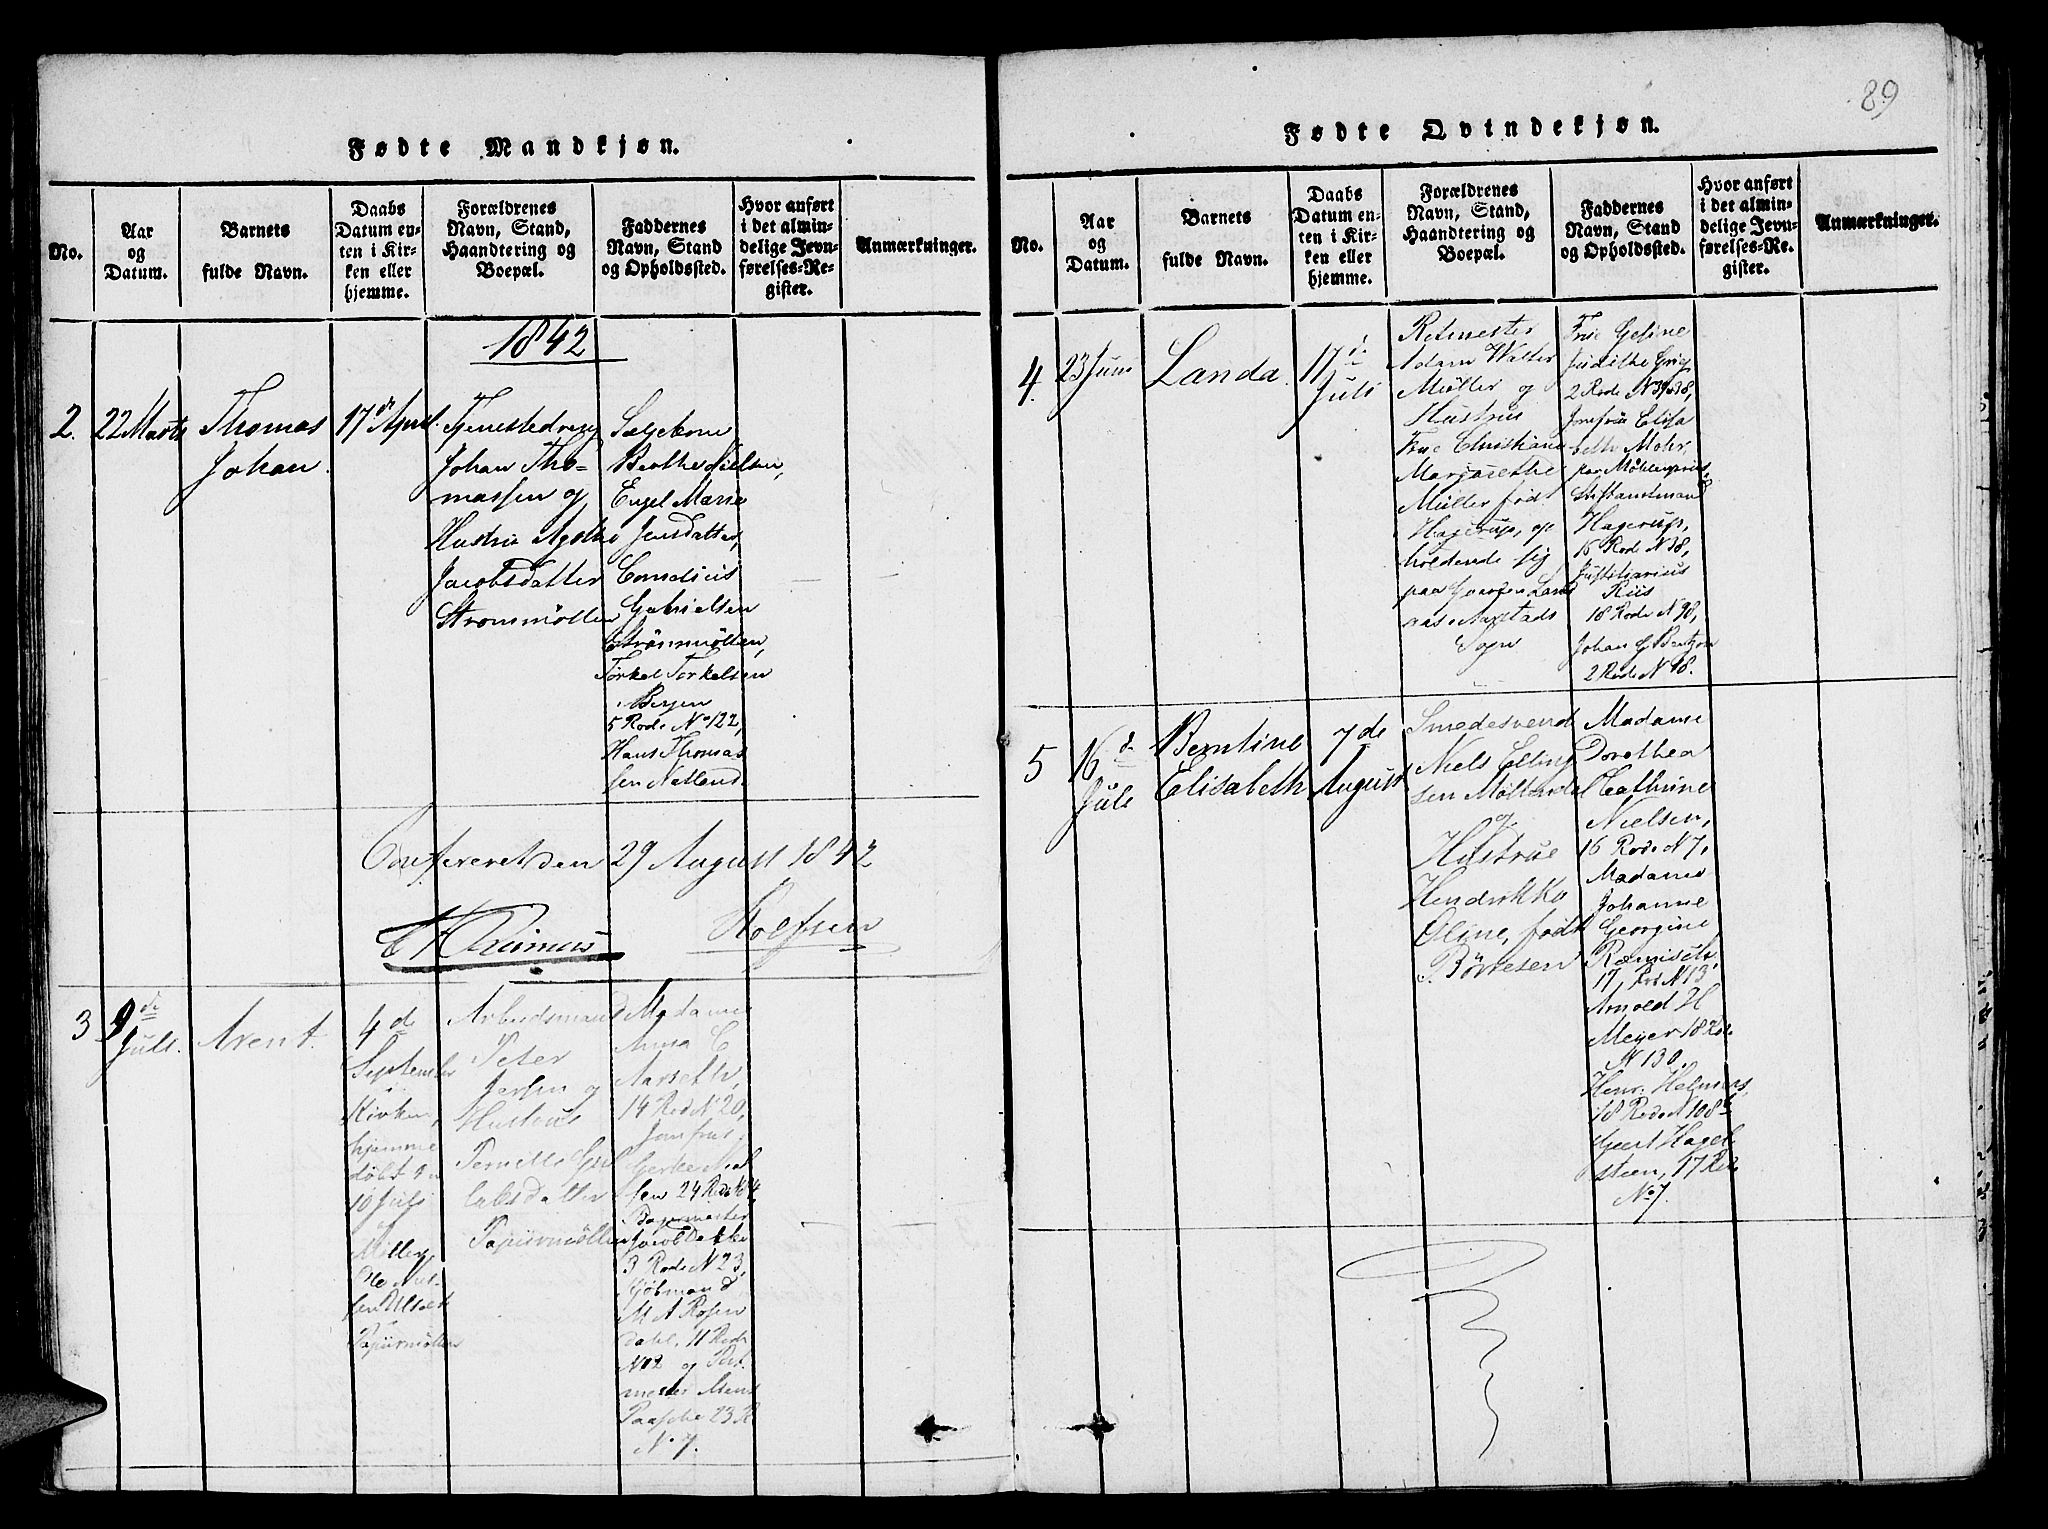 89
Fødte Mandkjøn.
No.
Aar
og
Datum.
Barnets
fulde Navn.
Daabs
Datum en-
ten i Kir-
ken eller
hjemme.
Forældrenes
Navn, Stand,
Haandtering og
Boepæl.
Faddernes
Navn, Stand
og Opholdssted.
Hvor anført
i det almin-
delige Jevn-
førelses-Re-
gister.
Anmærkninger.
1842
2.
22 Marts
Thomas
Johan.
17de April.
Tjenestedreng
Johan Tho-
massen og
Hustru
Jacobsdatter
Strømmøllen
Berthe Nielsen,
Engel Marie
Jensdatter,
Cornelius
Gabrielsen
Strømmøllen,
Torkel Torkelsen
Bergen
5 Rode No 122,
Hans Thomas
sen Natland.
Confereret den 29 August 1842
Rolfsen
3
9de
Juli.
Arent.
4de
September
i
Kirken,
hjemme
døbt den
10 Juli
af
Papiirmøllen
Arbeidsmand
Peter
Jersin og
Hustrue
Pernille
Papiirmøllen
Madame
Anna C
Aarseth,
14 Rode N 20,
Jomfrue
sen 24 Rode N 4,
Jacob Dekke
3 Rode N 23,
Kjøbmand
M A Rosen
dahl, 11 Rode
No 2 og Post
mester Mens
Paasche 23 R
No 7.
Fødte Qvindekjøn.
No.
Aar
og
Datum.
Barnets
fulde Navn.
Daabs
Datum en-
ten i Kir-
ken eller
hjemme.
Forældrenes
Navn, Stand,
Haandtering og
Boepæl.
Faddernes
Navn, Stand
og Opholdssted.
Hvor anført
i det almin-
delige Jevn-
førelses-Re-
gister.
Anmærkninger.
4.
23 Juni
Landa.
17de
Juli
Ritmester
Adam Walter
Müller og
Hustrue
Frue Christiane
Margarethe
Müller født
Hagerup, op
holdende sig
paa Gaarden Land
aas Aarstads
Sogn
Frue Gesine
Judithe Grieg
2 Rode N 37 & 38,
Jomfrue Elisa
beth Mohr,
paa Møhlenpriis
Stiftamtmand
Hagerup,
16 Rode N 38,
Justitiarius
Riis
18 Rode N 98,
Johan G Bentzon
2 Rode N 18.
5
16de
Juli
Berntine
Elisabeth
7de
August
Smedesvend
Niels Elling
sen Møllendal
og
Hustrue
Hendrikka
Oline, født
Børresen
Madame
Dorothea
Cathrine
Nielsen,
16 Rode N 7,
Madame
Johanne
Georgine
17 Rod N 13,
Arnold H
Meyer 18 Rode
N 130,
Henr. Helmers,
18 Rode N 108
Geert Hagel
steen, 17 Rode
No 7.